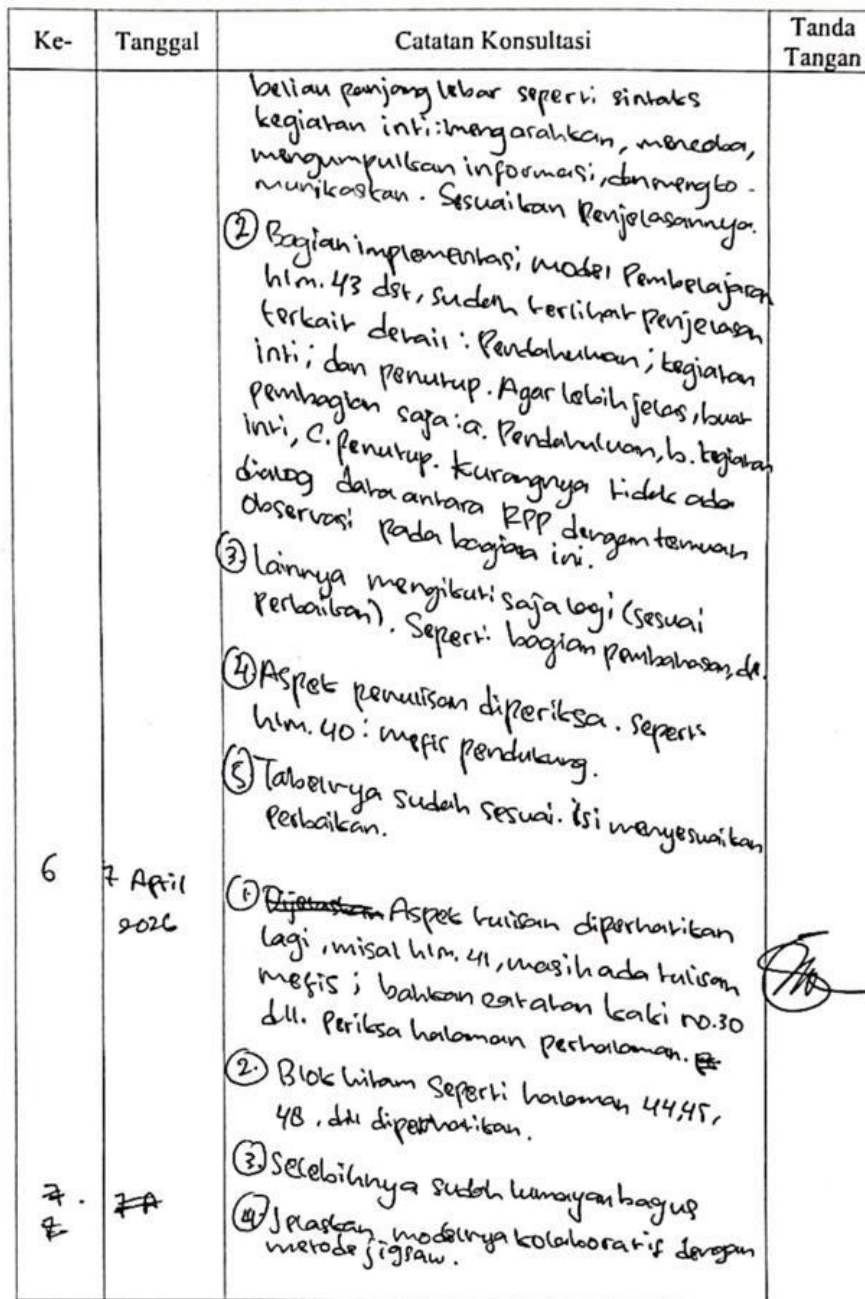 Ke-
Tanggal
Catatan Konsultasi
Tanda
Tangan
beliau panjang lebar seperti sintaks
kegiatan inti: mengarahkan, mencoba,
mengumpulkan informasi, dan mengko-
munikasikan. Sesuaikan Penjelasannya.
② Bagian implementasi model Pembelajaran
hlm. 43 dst, sudah terlihat penjelasan
terkait detail: Pendahuluan; kegiatan
inti; dan penutup. Agar lebih jelas, buat
pembagian saja: a. Pendahuluan, b. kegiatan
inti, C. Penutup. Kurangnya tidak ada
dialog data antara RPP dengan temuan
observasi pada bagian ini.
③ lainnya mengikuti saja lagi (sesuai
Perbaikan). Seperti bagian pembahasan, dll.
④ Aspek penulisan diperiksa. Seperti
hlm. 40: pendukung.
⑤ Tabelnya sudah sesuai. Isi menyesuaikan
Perbaikan.
6
7 April
2026
① Dijelaskan Aspek tulisan diperhatikan
lagi, misal hlm. 41, masih ada tulisan
; bahkan catatan kaki no. 30
dll. Periksa halaman perhalaman.
② Blok hitam seperti halaman 44,45,
48, dll diperhatikan.
③ Selebihnya sudah lumayan bagus
7.
7 A
④ Jelaskan modelnya kolaboratif dengan
metode jigsaw.